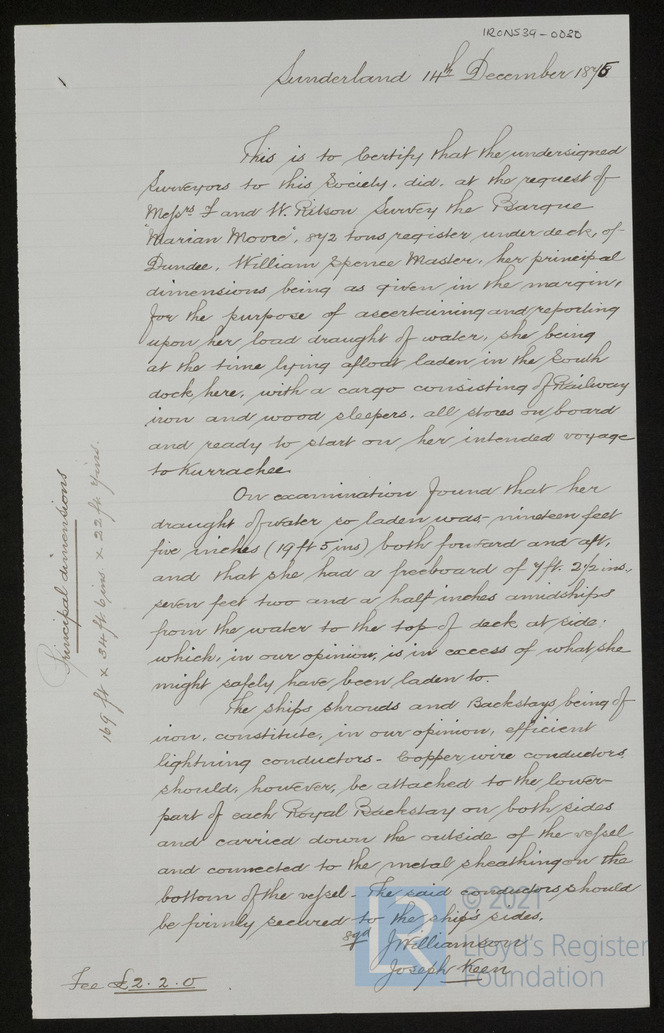 IRON539-0030
Sunderland 14th December 1875
This is to Certify that the undersigned
Surveyors to this Society, did, at the request of
Messrs F and W. Ritson Survey the Barque
"Marian Moore", 872 tons register under deck, of
Dundee, William Spence Master, her principal
dimensions being as given in the margin,
for the purpose of ascertaining and reporting
upon her load draught of water, she being
at the time lying afloat laden in the South
dock, here, with a cargo consisting of Railway
iron and wood sleepers, all stores on board
and ready to start on her intended voyage
to Kurrachee.
On examination found that her
draught of water so laden was - nineteen feet
five inches (19 ft 5 ins) both forward and aft,
and that she had a freeboard of 7 ft. 2½ ins.
seven feet two and a half inches amidships
from the water to the top of deck at side;
which, in our opinion, is in excess of what she
might safely have been laden to.
The ships shrouds and Backstays being of
iron, constitute, in our opinion, efficient
lightning conductors - Copper wire conductors
should, however, be attached to the lower
part of each Royal Backstay on both sides
and carried down the outside of the vessel
and connected to the metal sheathing on the
bottom of the vessel - The said conductors should
be firmly secured to the ship's sides.
Sgd J Williamson
Joseph Keen
Fee £2.2.0
Principal dimensions
169 ft x 34 ft 6 ins. x 22 ft 7 ins.
© 2021
LR
Lloyd's Register
Foundation